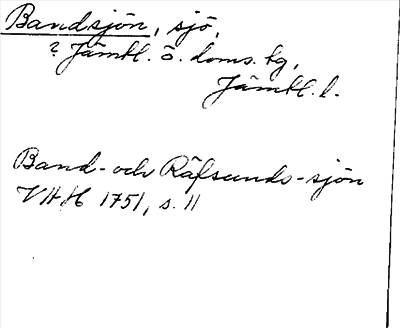 Bandsjön, sjö,
? Jämtl. ö. doms. tg,
Jämtl. l.
Band- och Räfsunds-sjön
VAH 1751, s. 11